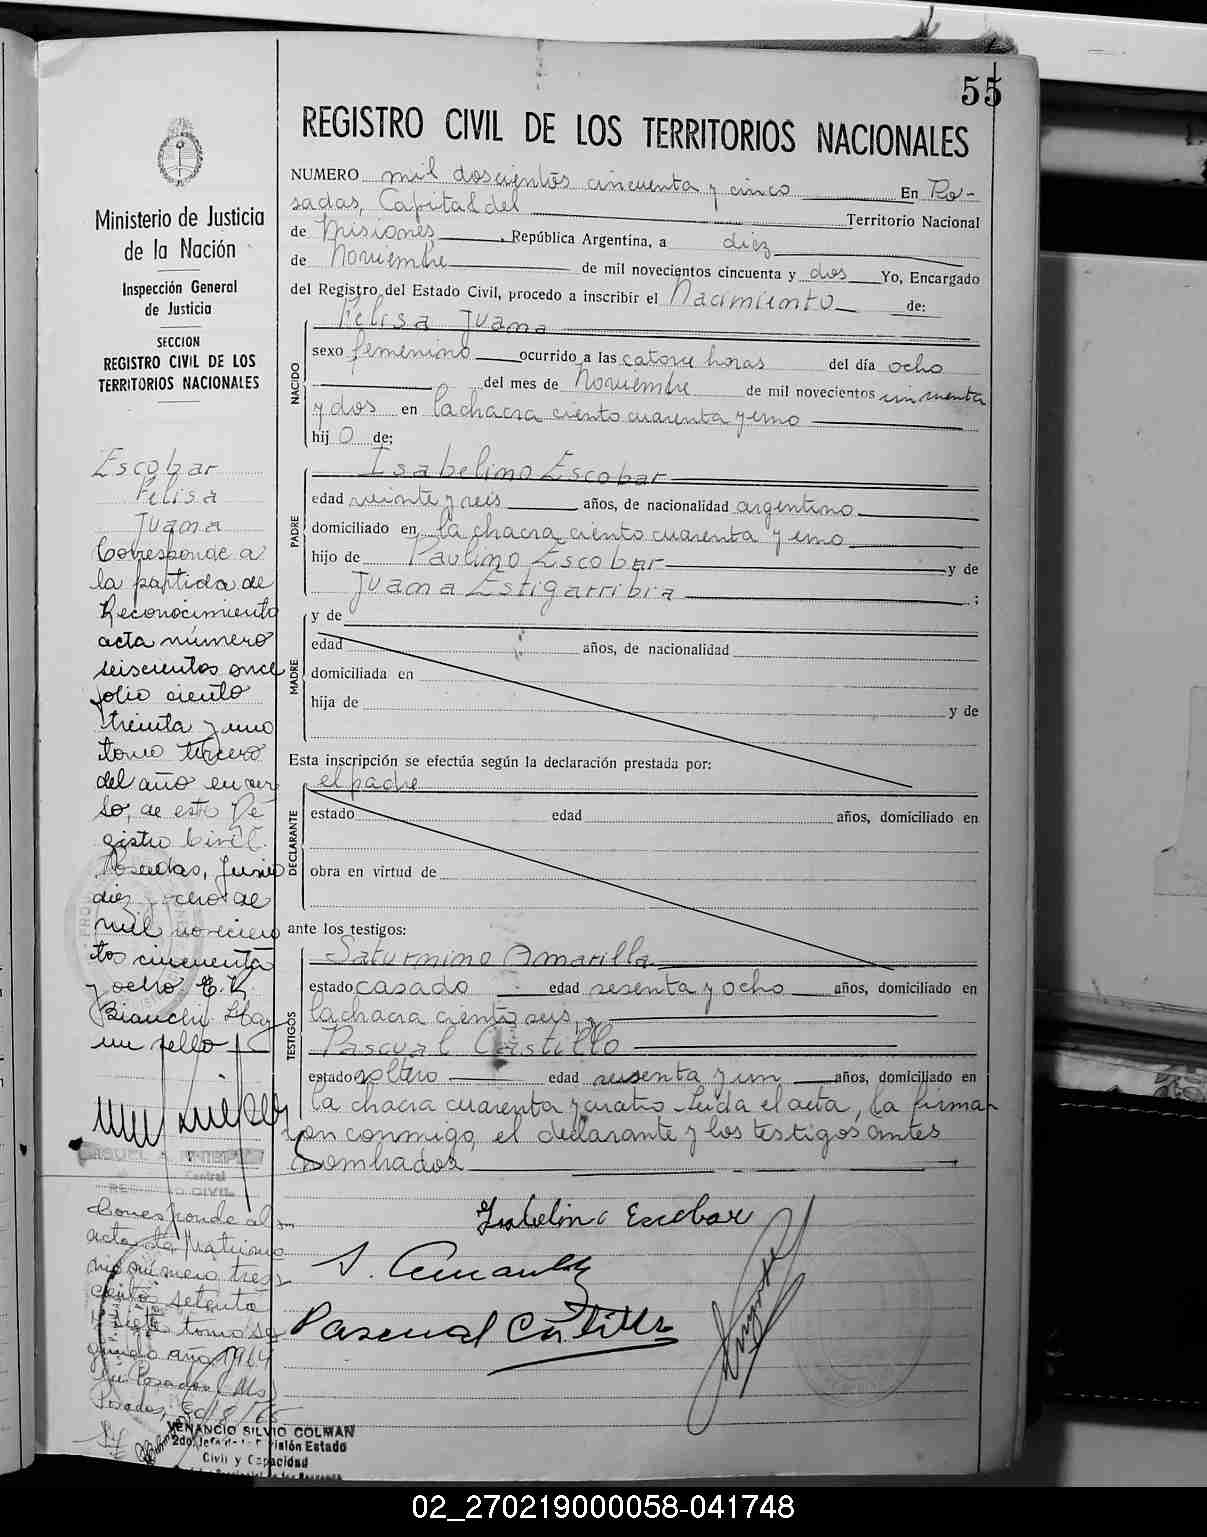 55
REGISTRO CIVIL DE LOS TERRITORIOS NACIONALES
NUMERO mil doscientos cincuenta y cinco En Po-
sadas, Capital del Territorio Nacional
de Misiones, República Argentina, a diez
de Noviembre de mil novecientos cincuenta y dos Yo, Encargado
del Registro del Estado Civil, procedo a inscribir el Nacimiento de:
NACIDO
Felisa Juana
sexo femenino ocurrido a las catorce horas del día ocho
del mes de Noviembre de mil novecientos cincuenta
y dos en la chacra ciento cuarenta y uno
hij o de:
PADRE
Isabelino Escobar
edad veinte y seis años, de nacionalidad argentino
domiciliado en la chacra ciento cuarenta y uno
hijo de Paulino Escobar y de
Juana Estigarribia ;
MADRE
y de
edad años, de nacionalidad
domiciliada en
hija de y de
Esta inscripción se efectúa según la declaración prestada por:
DECLARANTE
el padre
estado edad años, domiciliado en
obra en virtud de
ante los testigos:
TESTIGOS
Saturnino Amarilla
estado casado edad sesenta y ocho años, domiciliado en
la chacra ciento seis, y
Pascual Castillo
estado soltero edad sesenta y un años, domiciliado en
la chacra cuarenta y cuatro Leida el acta, la firma-
ron conmigo, el declarante y los testigos antes
nombrados
Isabelino Escobar
Pascual Castillo
Ministerio de Justicia
de la Nación
Inspección General
de Justicia
SECCION
REGISTRO CIVIL DE LOS
TERRITORIOS NACIONALES
Escobar
Felisa
Juana
Corresponde a
la partida de
Reconocimiento
acta número
seiscientos once
folio ciento
treinta y uno
tomo tercero
del año en cur
so, de este Re
gistro Civil.
Posadas, Junio
diez y ocho de
mil novecien
tos cincuenta
y ocho E. V.
Bianchi Hay
un sello
Central
REGISTRO CIVIL
Corresponde al
acta de Matrimo
nio número tres
cientos setenta
y siete tomo se
gundo año 1964
Posadas
Posadas,
VENANCIO SILVIO COLMAN
2do. Jefe División Estado
Civil y Capacidad
02_270219000058-041748